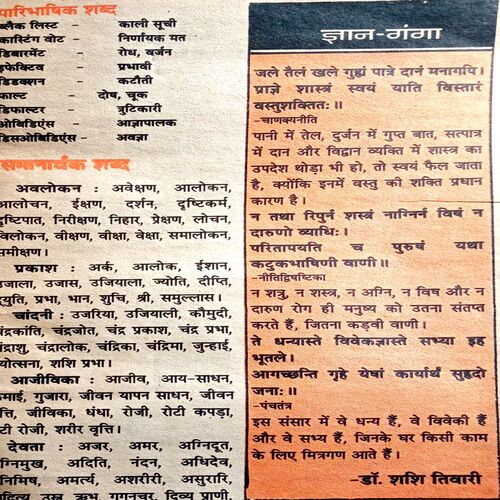 पारिभाषिक शब्द
ब्लैक लिस्ट - काली सूची
कास्टिंग वोट - निर्णायक मत
डिबारमेंट - रोध, वर्जन
इफेक्टिव - प्रभावी
डिडक्शन - कटौती
फाल्ट - दोष, चूक
डिफाल्टर - त्रुटिकारी
ओबिडिएंस - आज्ञापालक
डिसओबिडिएंस - अवज्ञा
समानार्थक शब्द
अवलोकन : अवेक्षण, आलोकन,
आलोचन, ईक्षण, दर्शन, दृष्टिकर्म,
दृष्टिपात, निरीक्षण, निहार, प्रेक्षण, लोचन,
विलोकन, वीक्षण, वीक्षा, वेक्षा, समालोकन,
समीक्षण।
प्रकाश : अर्क, आलोक, ईशान,
उजाला, उजास, उजियाला, ज्योति, दीप्ति,
द्युति, प्रभा, भान, शुचि, श्री, समुल्लास।
चांदनी : उजरिया, उजियाली, कौमुदी,
चंद्रकांति, चंद्रजोत, चंद्र प्रकाश, चंद्र प्रभा,
चंद्राशु, चंद्रालोक, चंद्रिका, चंद्रिमा, जुन्हाई,
ज्योत्सना, शशि प्रभा।
आजीविका : आजीव, आय-साधन,
कमाई, गुजारा, जीवन यापन साधन, जीवन
वृत्ति, जीविका, धंधा, रोजी, रोटी कपड़ा,
रोटी रोजी, शरीर वृत्ति।
देवता : अजर, अमर, अग्निदूत,
अग्निमुख, अदिति, नंदन, अधिदेव,
अनिमिष, अमर्त्य, अशरीरी, असुरारि,
आदित्य, उस्र, ऋभु, गगनचर, दिव्य प्राणी,
ज्ञान-गंगा
जले तैलं खले गुह्यं पात्रे दानं मनागयि।
प्राज्ञे शास्त्रं स्वयं याति विस्तारं
वस्तुशक्तितः॥
-चाणक्यनीति
पानी में तेल, दुर्जन में गुप्त बात, सत्पात्र
में दान और विद्वान व्यक्ति में शास्त्र का
उपदेश थोड़ा भी हो, तो स्वयं फैल जाता
है, क्योंकि इनमें वस्तु की शक्ति प्रधान
कारण है।
न तथा रिपुर्न शस्त्रं नाग्निर्न विषं न
दारुणो व्याधिः।
परितापयति च पुरुषं यथा
कटुकभाषिणी वाणी॥
-नीतिद्विषष्टिका
न शत्रु, न शस्त्र, न अग्नि, न विष और न
दारुण रोग ही मनुष्य को उतना संतप्त
करते हैं, जितना कड़वी वाणी।
ते धन्यास्ते विवेकज्ञास्ते सभ्या इह
भूतले।
आगच्छन्ति गृहे येषां कार्यार्थं सुहृदो
जनाः॥
-पंचतंत्र
इस संसार में वे धन्य हैं, वे विवेकी हैं
और वे सभ्य हैं, जिनके घर किसी काम
के लिए मित्रगण आते हैं।
-डॉ. शशि तिवारी